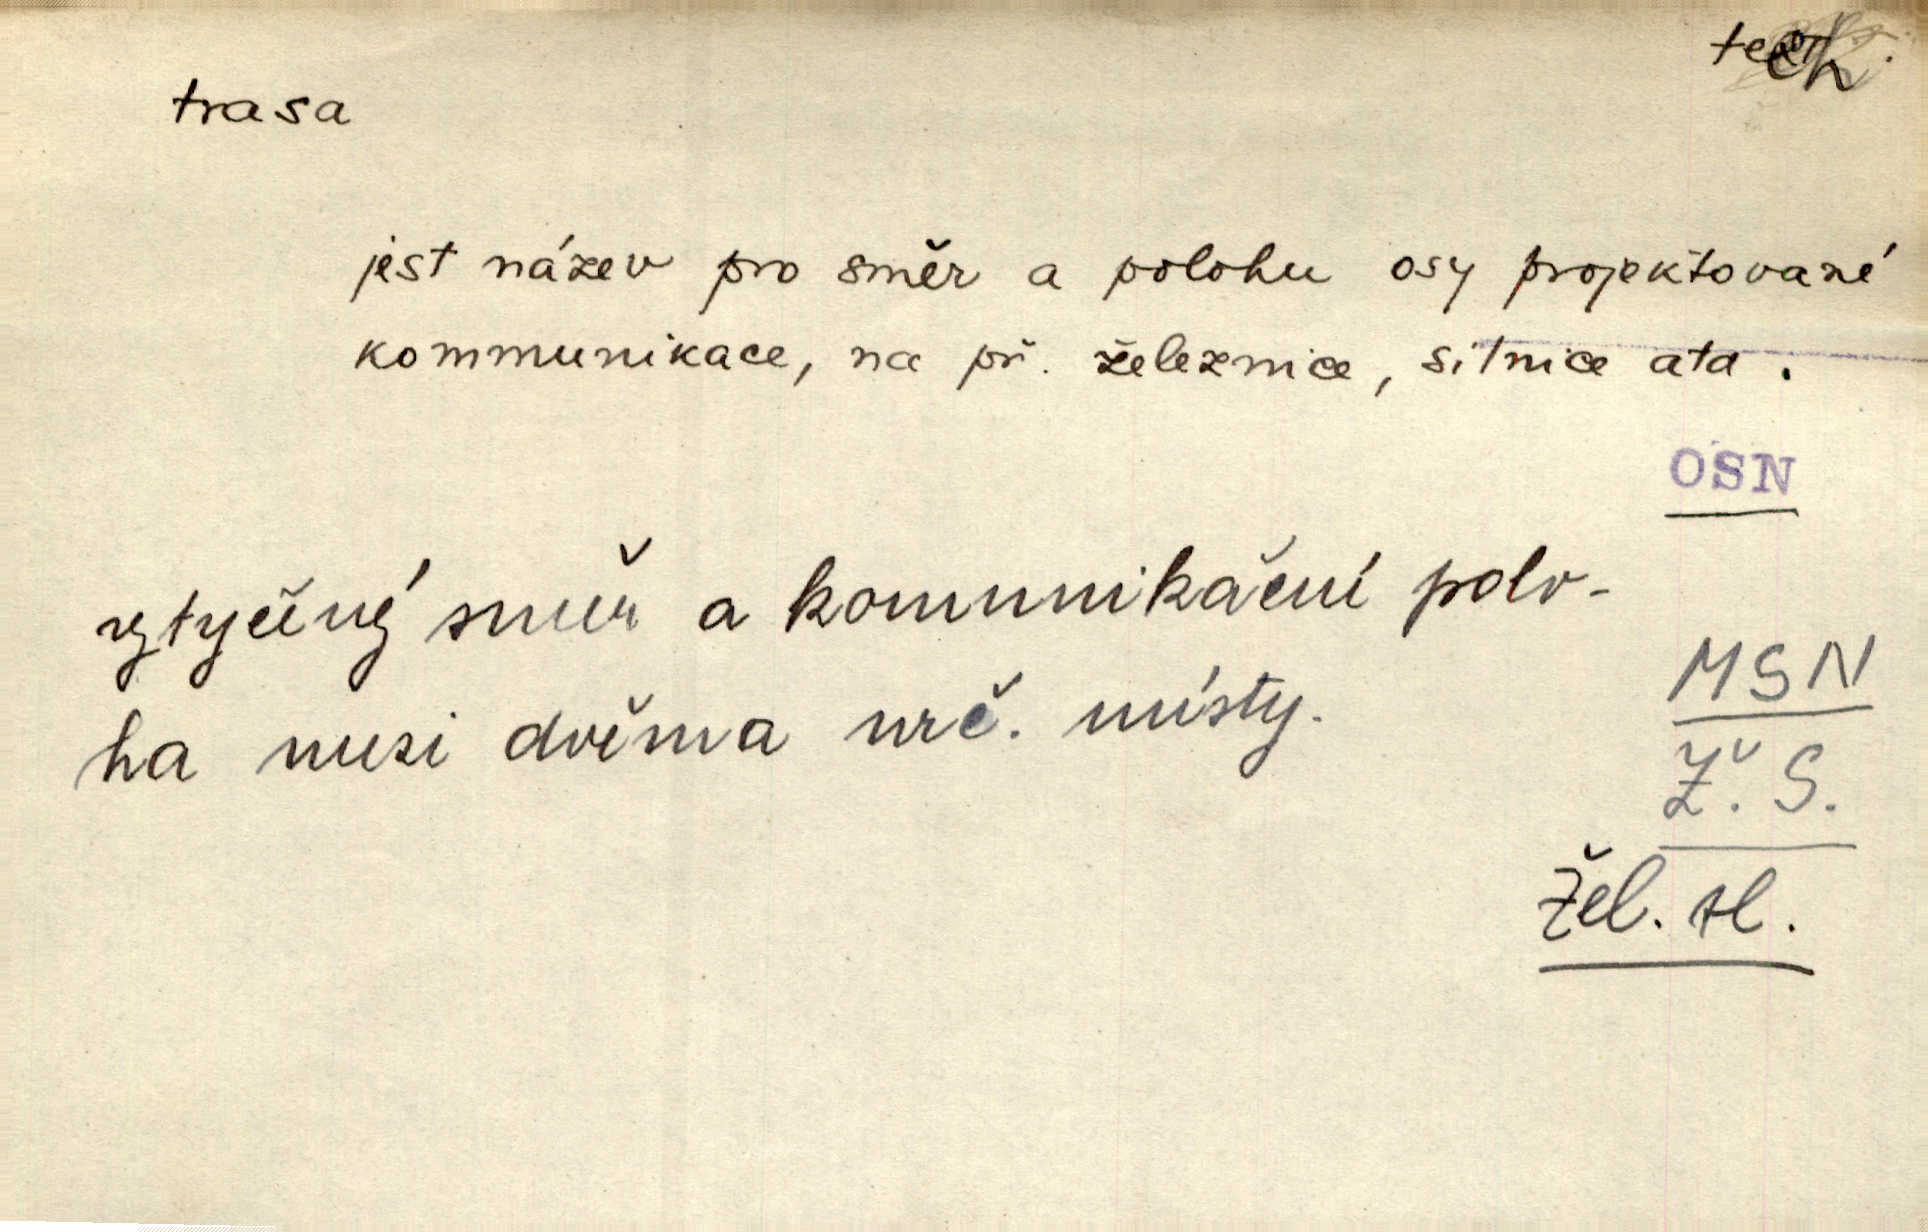 tech.
trasa
jest název pro směr a polohu osy projektované
kommunikace, na př. železnice, silnice atd.
OSN
vytyčený směr a komunikační polo-
ha mezi dvěma urč. místy.
MSN
Ž. S.
Žel. sl.